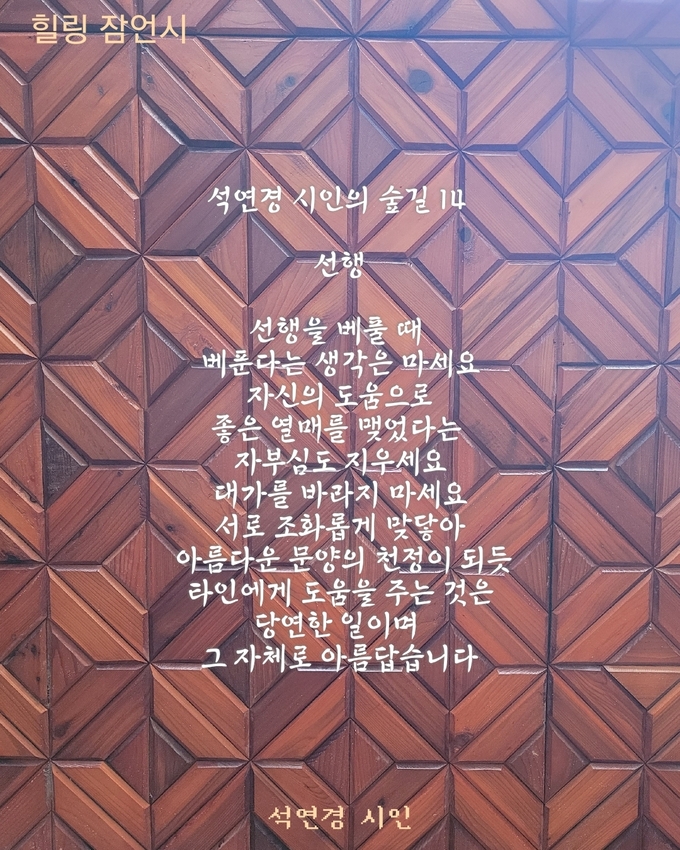 힐링 잠언시
석연경 시인의 숲길 14
선행
선행을 베풀 때
베푼다는 생각은 마세요
자신의 도움으로
좋은 열매를 맺었다는
자부심도 지우세요
대가를 바라지 마세요
서로 조화롭게 맞닿아
아름다운 문양의 천정이 되듯
타인에게 도움을 주는 것은
당연한 일이며
그 자체로 아름답습니다
석연경 시인